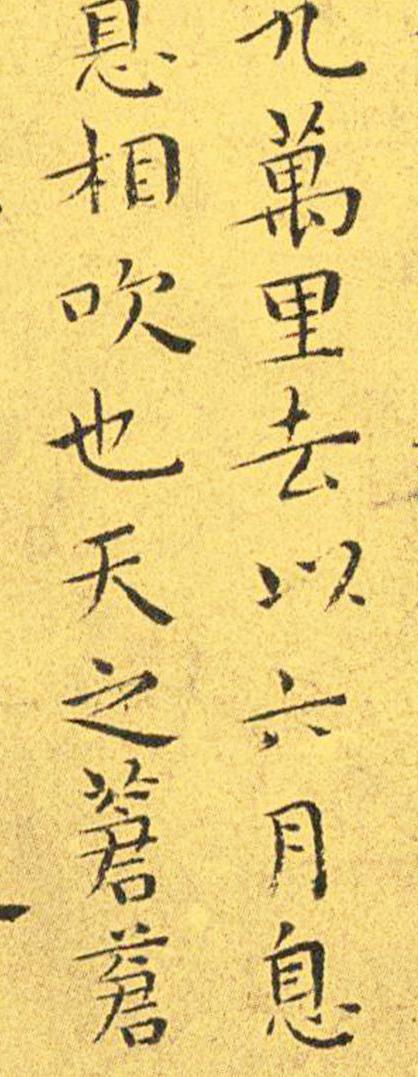 九萬里去以六月息
息相吹也天之蒼蒼